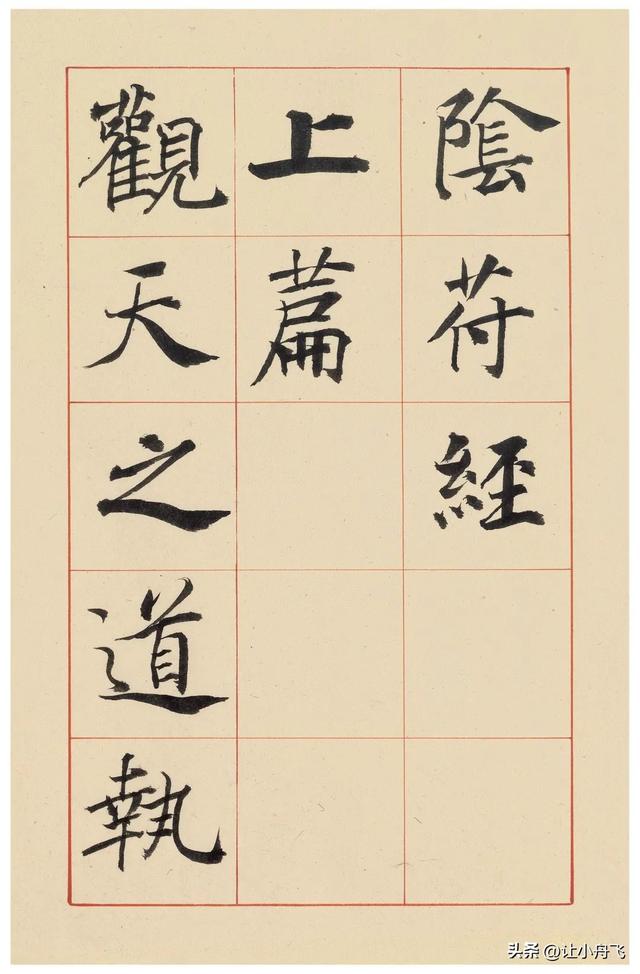 陰苻經
上萹
觀天之道執
头条 @让小舟飞